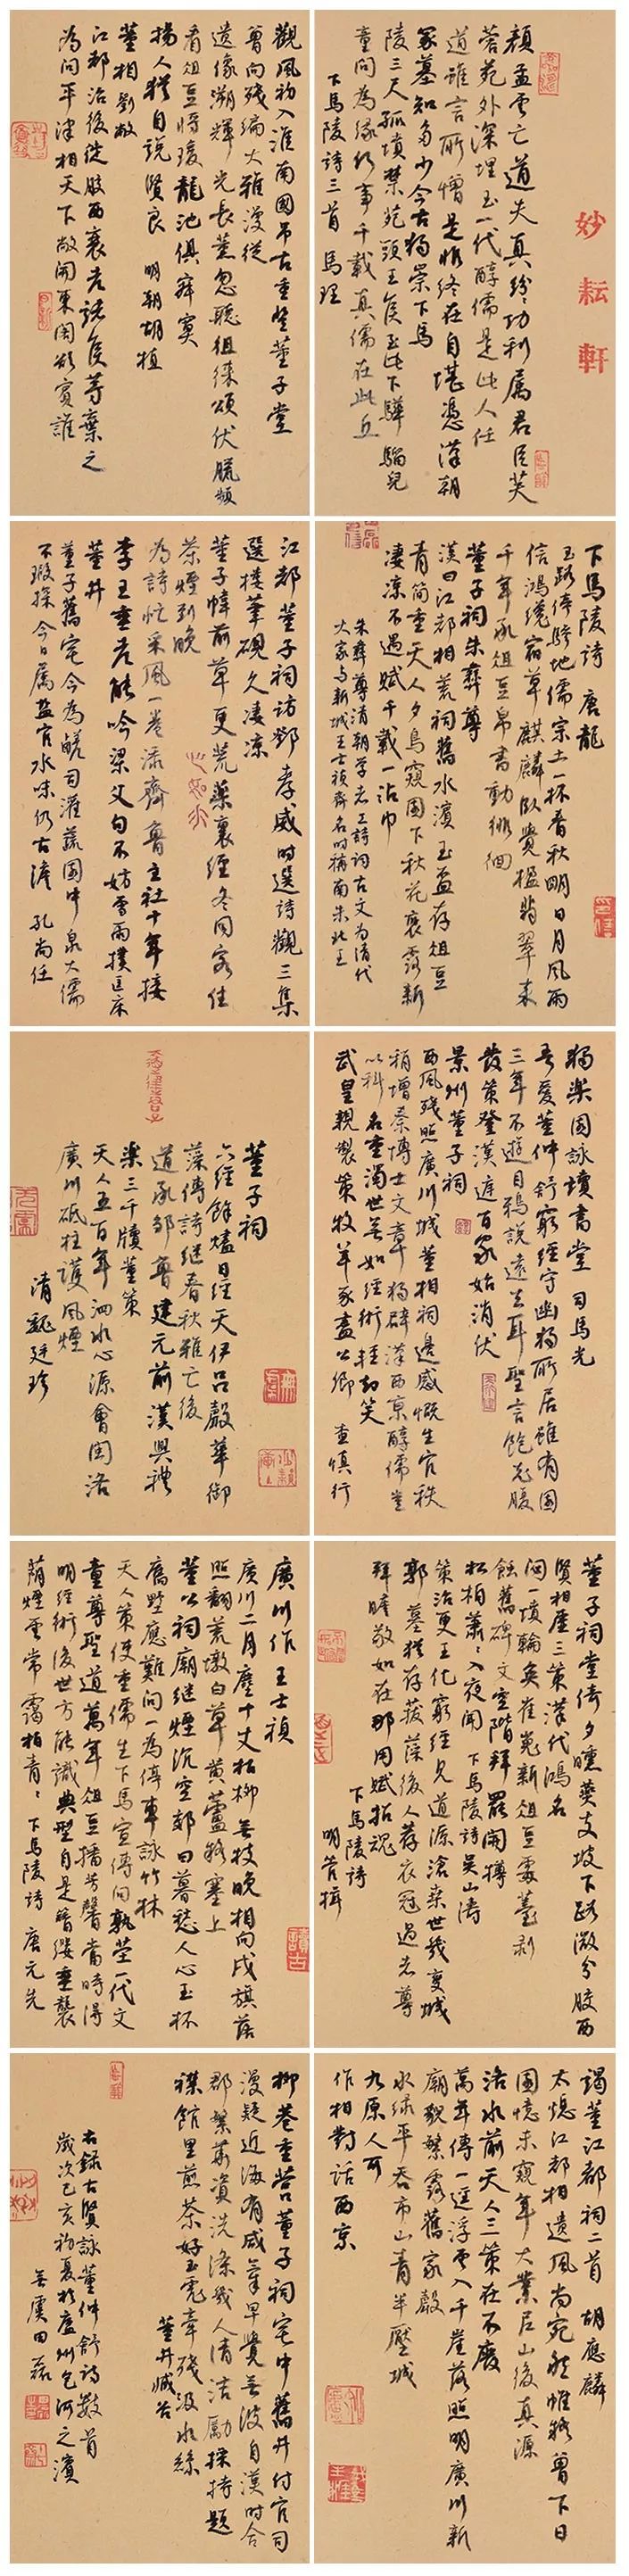 妙耘軒
顏孟云亡道失真紛紛功利属君臣芙
蓉苑外深埋玉一代醇儒是此人任
道雖言所憎是惟終在自堪憑漢朝
冢墓知多少今古獨崇下馬
陵三尺孤墳禁苑頭王侯至此下驊騮兒
童問為緣何事千載真儒在此丘
下馬陵詩三首 馬理
觀風初入淮南國吊古重登董子堂
曾向殘編大雅漫從
遺像溯輝光長蒸忽聽徂徠頌伏臘頻
看俎豆將環龍池俱寂寞
揚人猶自說賢良 明朝胡植
董相劉敞
江都治後從膠西衰老諸侯等棄之
為問平津相天下敞開東閣欲賓誰
下馬陵詩 唐龍
玉路停驂地儒宗土一抔春秋明日月風雨
信鴻纔宿草麒麟臥貴楹翡翠來
千年承俎豆帛書動徘徊
董子祠朱彝尊
漢曰江都相荒祠舊水濱玉盃存俎豆
青簡重天人夕鳥窺園下秋花裛露新
淒涼不遇賦千載一沾巾
朱彝尊清朝學者工詩詞古文為清代
大家與新城王士禎齊名時稱南朱北王
江都董子祠訪鄧孝威時選詩觀三集
選樓筆硯久淒涼
董子幃前草更荒藥裹經冬同客住
茶煙到晚
為詩忙采風一卷添齊魯主社十年接
李王垂老能吟梁父句不妨雪雨撲匡床
董井
董子舊宅今為鹺司灌蔬園中泉大儒
不瑕探今日属盐官水味仍古澹 孔尚任
獨樂園詠讀書堂 司馬光
吾愛董仲舒窮經守幽獨所居雖有園
三年不遊目邪說遠去耳聖言飽充腹
發策登漢庭百家始消伏
景州董子祠
西風殘照廣川城董相祠邊感慨生官秩
稍增秦博士文章獨辟漢西京醇儒豈
以科名重濁世無如經術輕却笑
武皇親製策牧羊豕盡公卿 查慎行
董子祠
六經餘燼日經天伊呂聲華御
藻傳詩繼春秋雅亡後
道承鄒魯建元前漢興禮
樂三千牘董策
天人五百年泗水心源會関洛
廣川砥柱護風煙
清魏廷珍
董子祠堂倚夕曛葵支坡下路微分膠西
賢相應三策漢代鴻名
閟一墳輪奐崔嵬新俎豆雲薹剥
蝕舊碑文空階拜罷開樽
松柏蕭蕭入夜聞 下馬陵詩吳山濤
策治更王化窮經見道源滄桑世幾變城
郭墓猶存蘋藻後人荐衣冠過者尊
拜瞻敬如在那用賦招魂
下馬陵詩
明 苦楫
廣川作 王士禎
廣川二月塵十丈拓柳無枝晚相向戍旗落
照翻荒墩白草黃蘆黏塞上
董公祠廟继煙沉空郊日暮愁人心玉杯
舊墅應難問一為停車詠竹林
天人策使重儒生下馬宣傳問孰塋一代文
章尊聖道萬年俎豆播芳馨當時得
明經術後世方能識典型自是簪纓垂襲
蔭煙雲常靄柏青青 下馬陵詩 唐元先
謁董江都祠二首 胡應麟
太息江都相遺風尚宛然帷餘曾下日
園憶未窺年大業尼山後真源
洛水前天人三策在不廢
萬年傳一逕浮雲入千崖落照明廣川新
廟貌繁露舊家聲
水綠平吞市山青半壓城
九原人可
作相對話西京
柳巷重營董子祠宅中舊井付官司
漫疑近海有咸氣早覺無波自漢時合
郡繁華資洗滌幾人清潔勵操持題
襟館里煎茶好玉甃牽殘汲水絲
董井臧谷
右錄古賢詠董仲舒詩數首
歲次己亥初夏於廬州包河之濱
無虞田磊